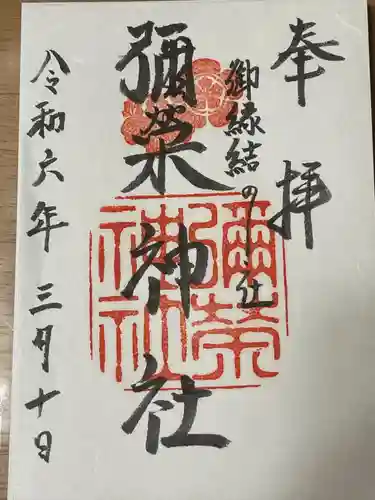 奉拝
御縁結の社
彌榮神社
彌榮神社
令和六年三月十日